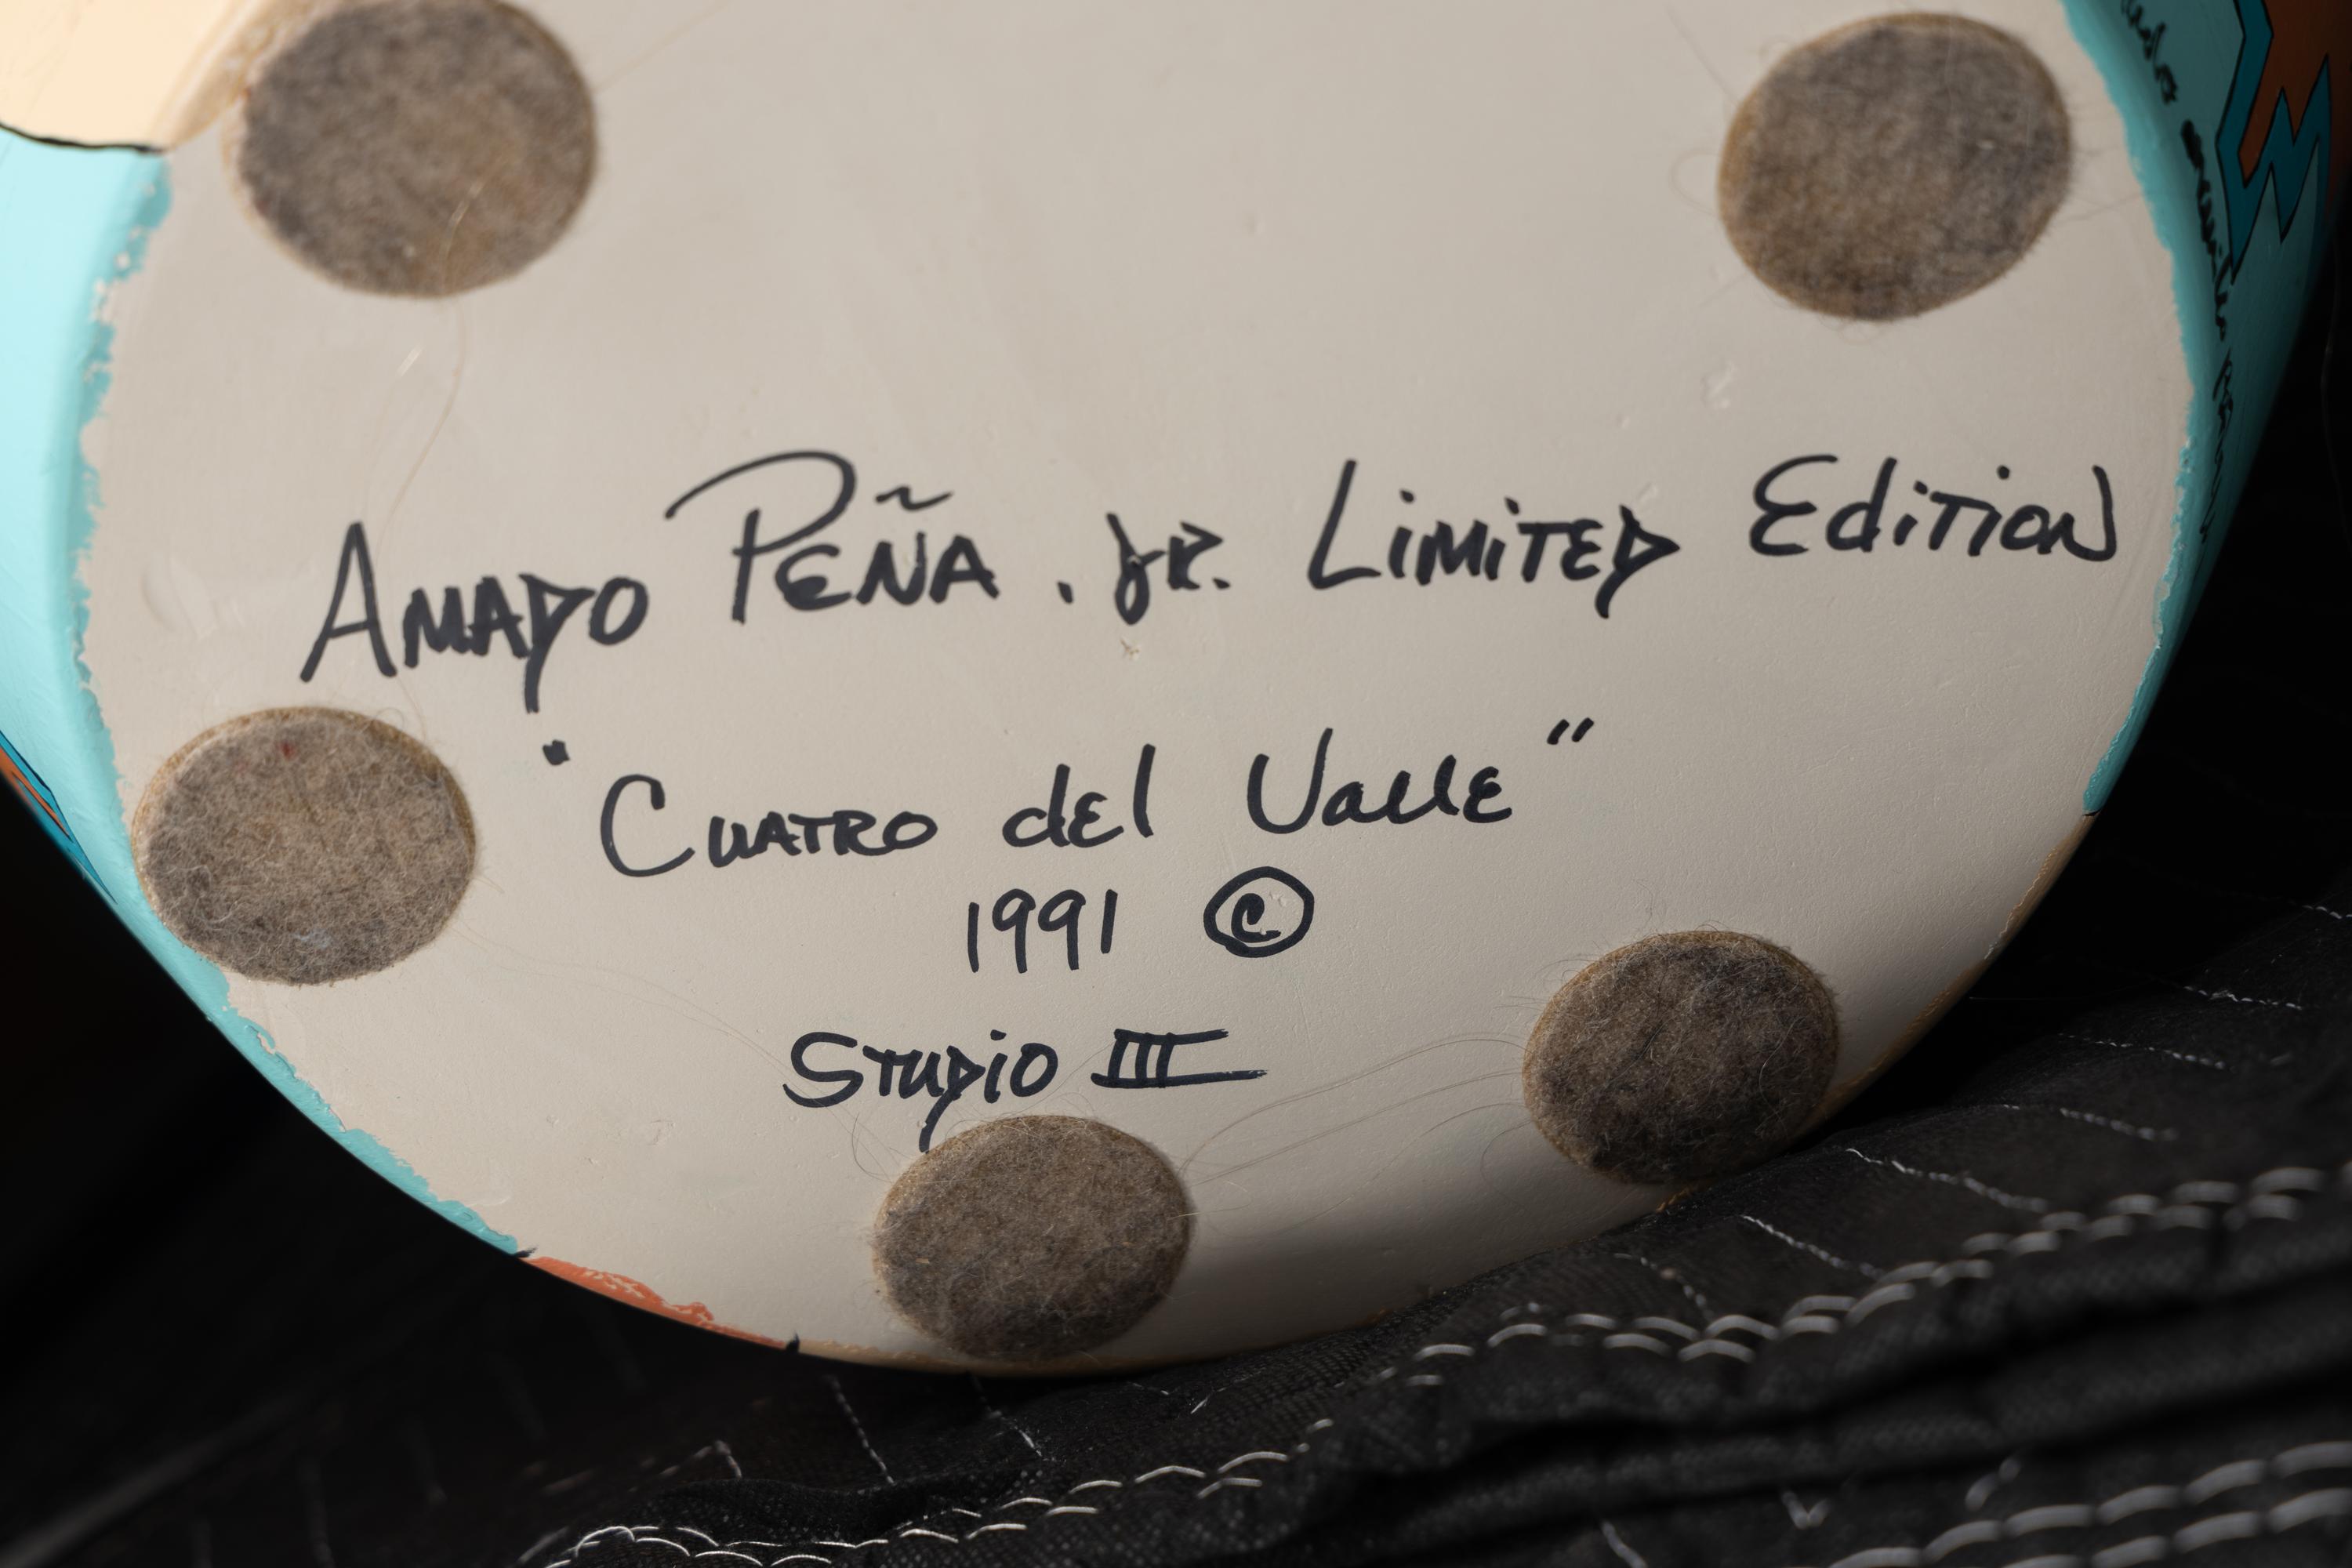 Amado Peña . Jr. Limited Edition
"Cuatro del Valle"
1991 ©
Studio III